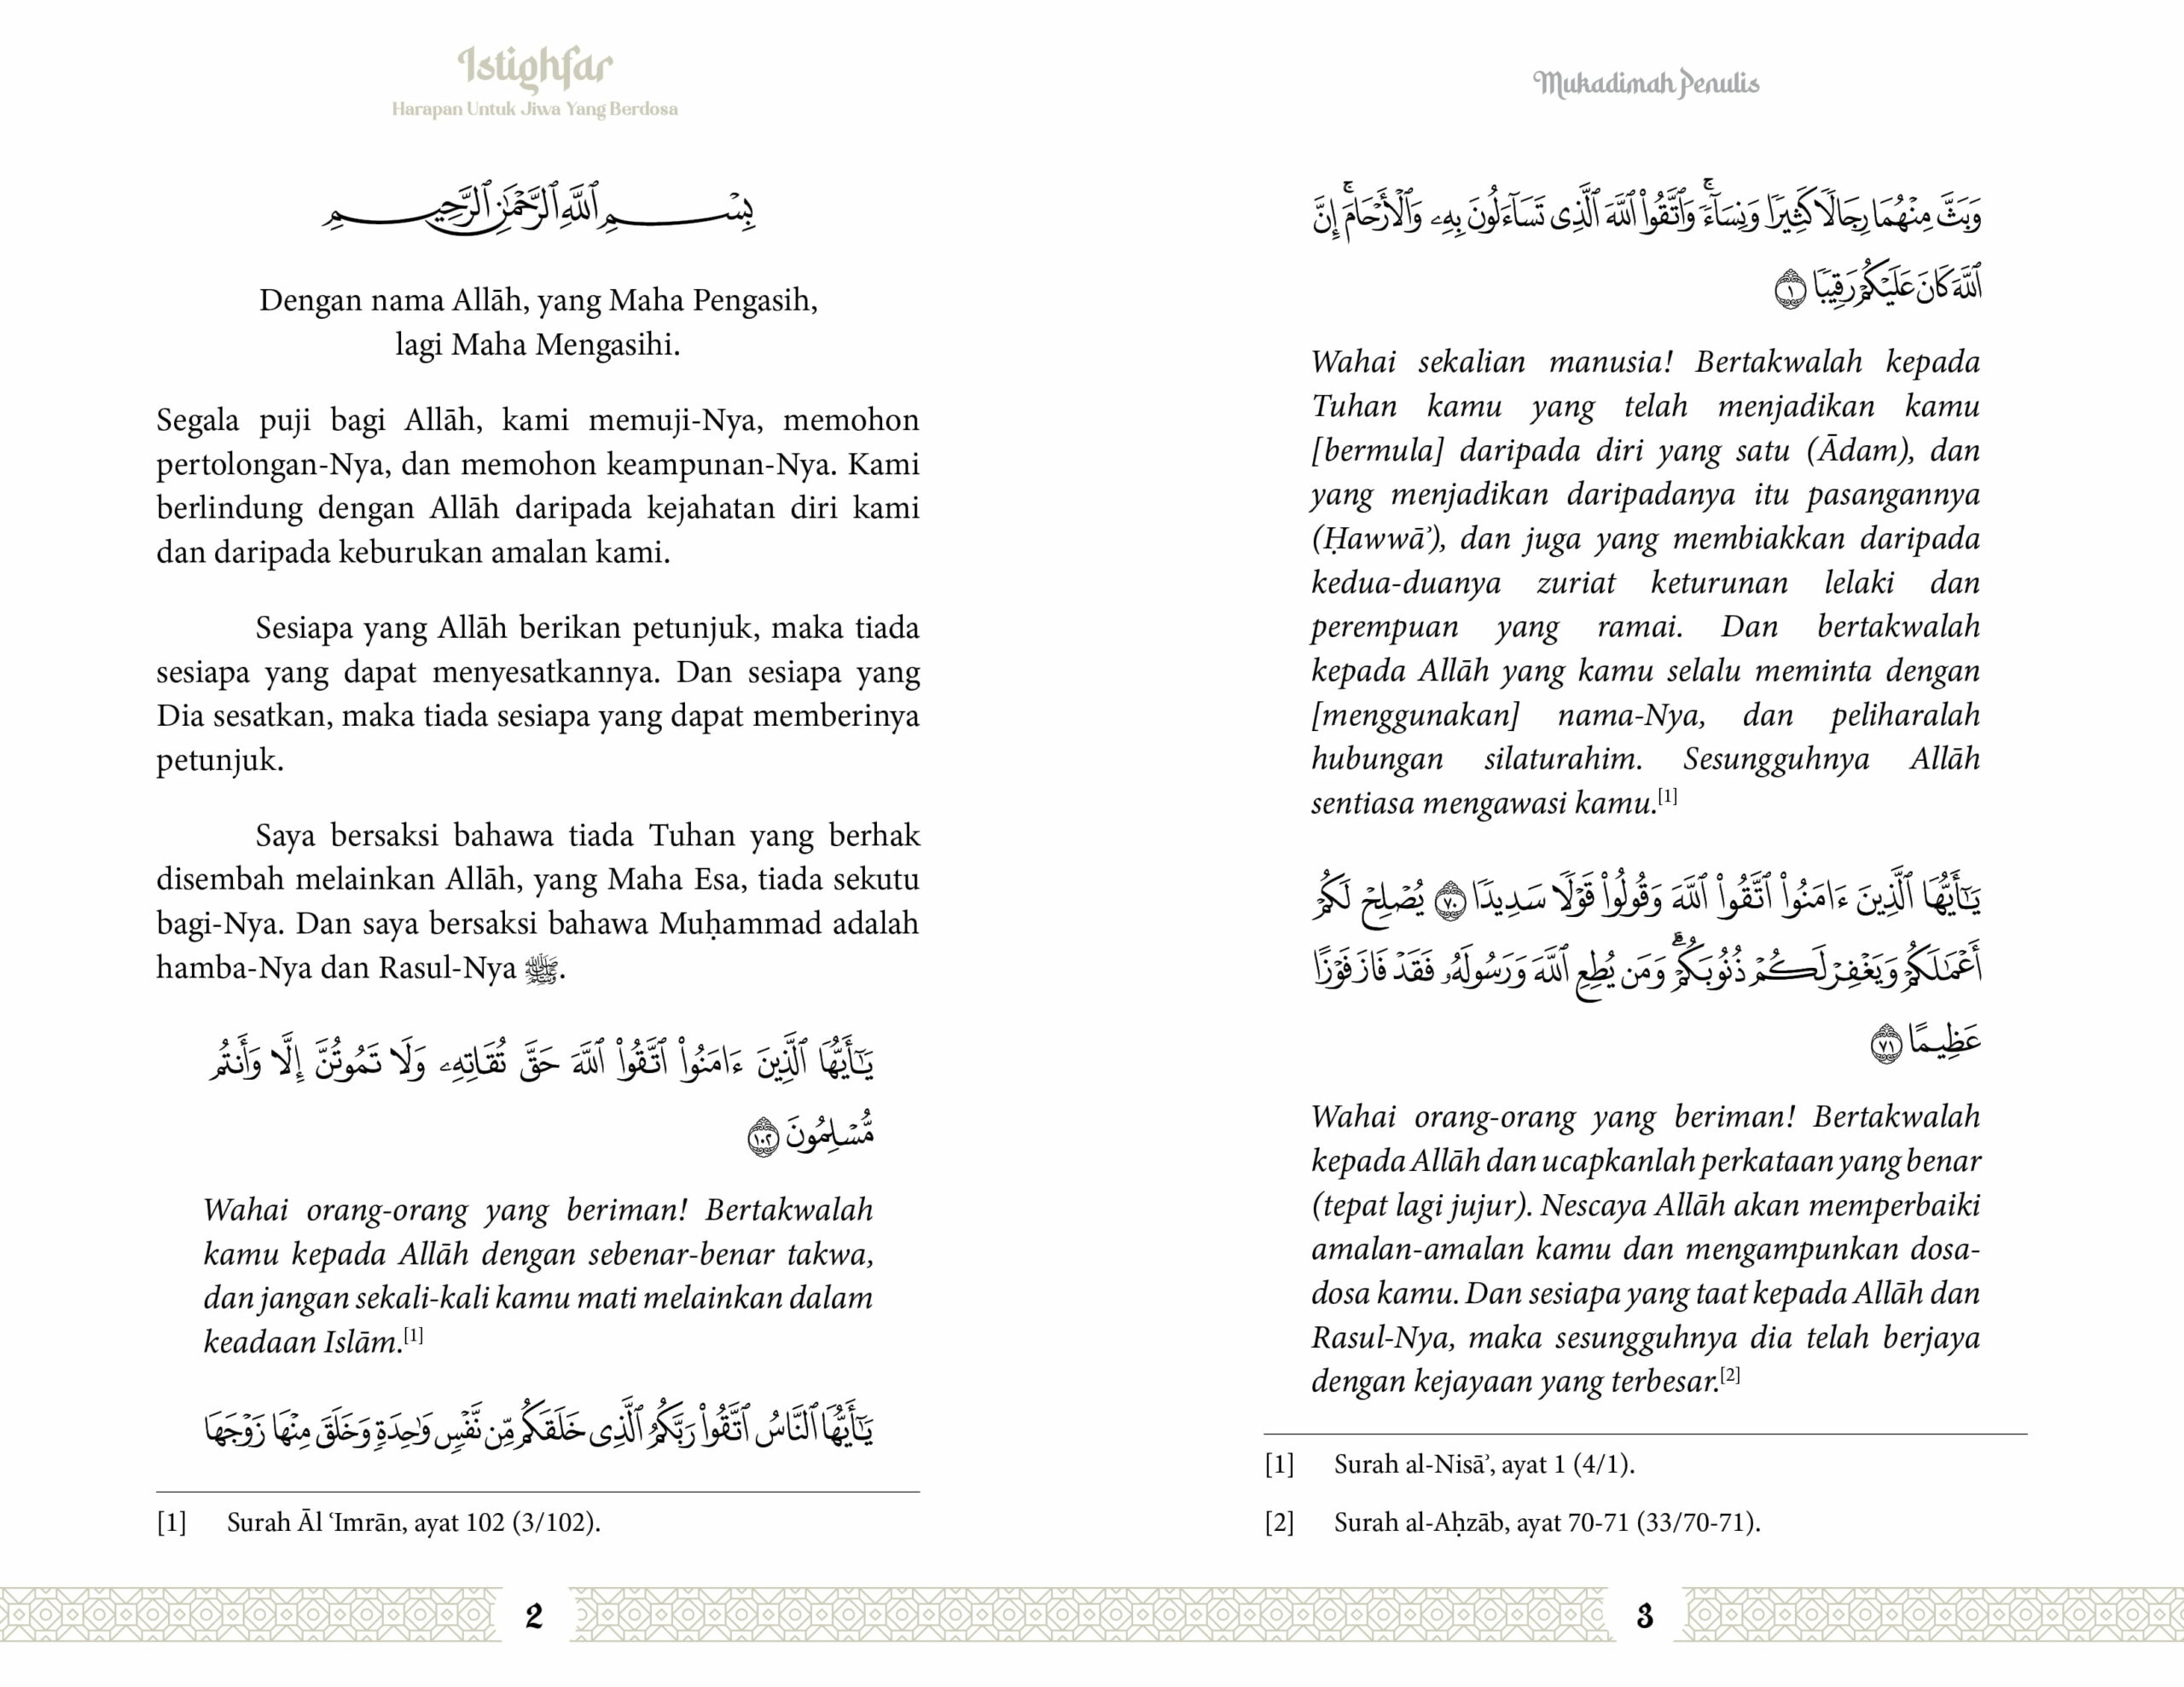 Istighfar
Harapan Untuk Jiwa Yang Berdosa
بِسْمِ ٱللَّهِ ٱلرَّحْمَٰنِ ٱلرَّحِيمِ
Dengan nama Allāh, yang Maha Pengasih,
lagi Maha Mengasihi.
Segala puji bagi Allāh, kami memuji-Nya, memohon
pertolongan-Nya, dan memohon keampunan-Nya. Kami
berlindung dengan Allāh daripada kejahatan diri kami
dan daripada keburukan amalan kami.
Sesiapa yang Allāh berikan petunjuk, maka tiada
sesiapa yang dapat menyesatkannya. Dan sesiapa yang
Dia sesatkan, maka tiada sesiapa yang dapat memberinya
petunjuk.
Saya bersaksi bahawa tiada Tuhan yang berhak
disembah melainkan Allāh, yang Maha Esa, tiada sekutu
bagi-Nya. Dan saya bersaksi bahawa Muḥammad adalah
hamba-Nya dan Rasul-Nya ﷺ.
يَـٰٓأَيُّهَا ٱلَّذِينَ ءَامَنُوا۟ ٱتَّقُوا۟ ٱللَّهَ حَقَّ تُقَاتِهِۦ وَلَا تَمُوتُنَّ إِلَّا وَأَنتُم
مُّسْلِمُونَ ١٠٢
Wahai orang-orang yang beriman! Bertakwalah
kamu kepada Allāh dengan sebenar-benar takwa,
dan jangan sekali-kali kamu mati melainkan dalam
keadaan Islām.[1]
يَـٰٓأَيُّهَا ٱلنَّاسُ ٱتَّقُوا۟ رَبَّكُمُ ٱلَّذِى خَلَقَكُم مِّن نَّفْسٍ وَٰحِدَةٍ وَخَلَقَ مِنْهَا زَوْجَهَا
[1] Surah Āl ʿImrān, ayat 102 (3/102).
2
Mukadimah Penulis
وَبَثَّ مِنْهُمَا رِجَالًا كَثِيرًا وَنِسَآءً ۚ وَٱتَّقُوا۟ ٱللَّهَ ٱلَّذِى تَسَآءَلُونَ بِهِۦ وَٱلْأَرْحَامَ ۚ إِنَّ
ٱللَّهَ كَانَ عَلَيْكُمْ رَقِيبًا ١
Wahai sekalian manusia! Bertakwalah kepada
Tuhan kamu yang telah menjadikan kamu
[bermula] daripada diri yang satu (Ādam), dan
yang menjadikan daripadanya itu pasangannya
(Ḥawwāʾ), dan juga yang membiakkan daripada
kedua-duanya zuriat keturunan lelaki dan
perempuan yang ramai. Dan bertakwalah
kepada Allāh yang kamu selalu meminta dengan
[menggunakan] nama-Nya, dan peliharalah
hubungan silaturahim. Sesungguhnya Allāh
sentiasa mengawasi kamu.[1]
يَـٰٓأَيُّهَا ٱلَّذِينَ ءَامَنُوا۟ ٱتَّقُوا۟ ٱللَّهَ وَقُولُوا۟ قَوْلًا سَدِيدًا ٧٠ يُصْلِحْ لَكُمْ
أَعْمَـٰلَكُمْ وَيَغْفِرْ لَكُمْ ذُنُوبَكُمْ ۗ وَمَن يُطِعِ ٱللَّهَ وَرَسُولَهُۥ فَقَدْ فَازَ فَوْزًا
عَظِيمًا ٧١
Wahai orang-orang yang beriman! Bertakwalah
kepada Allāh dan ucapkanlah perkataan yang benar
(tepat lagi jujur). Nescaya Allāh akan memperbaiki
amalan-amalan kamu dan mengampunkan dosa-
dosa kamu. Dan sesiapa yang taat kepada Allāh dan
Rasul-Nya, maka sesungguhnya dia telah berjaya
dengan kejayaan yang terbesar.[2]
[1] Surah al-Nisāʾ, ayat 1 (4/1).
[2] Surah al-Aḥzāb, ayat 70-71 (33/70-71).
3